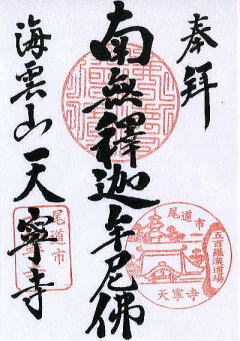 奉拜
南無釋迦牟尼佛
海雲山天寧寺
尾道市
五百羅漢道場
天寧寺
尾道市